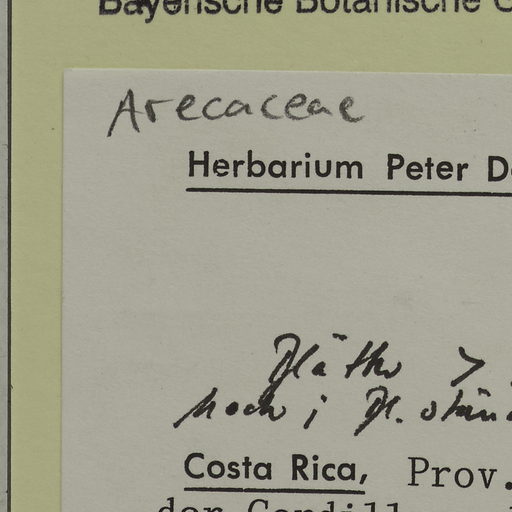 Bayerische Botanische G
Arecaceae
Herbarium Peter D
>
hoch; Bl.
Costa Rica, Prov.
der Cordill